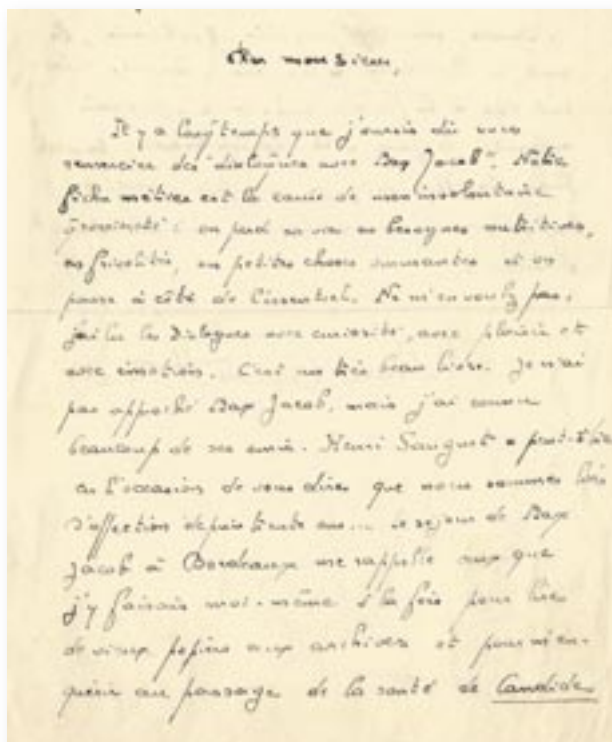 Cher monsieur,
Il y a longtemps que j'aurais dû vous
remercier des "dialogues avec Max Jacob". Notre
fichu métier est la cause de mon involontaire
grossièreté : on perd sa vie en besognes nutritives,
en frivolités, en petites choses ennuyantes et on
passe à côté de l'essentiel. Ne m'en voulez pas,
j'ai lu les Dialogues avec curiosité, avec plaisir et
avec émotion. C'est un très beau livre. Je n'ai
pas approché Max Jacob, mais j'ai connu
beaucoup de ses amis. Henri Sauguet a peut-être
eu l'occasion de vous dire que nous sommes liés
d'affection depuis trente ans... le séjour de Max
Jacob à Bordeaux me rappelle ceux que
j'y faisais moi-même à la fois pour lire
de vieux papiers aux archives et pour m'en-
quérir au passage de la santé de Candide